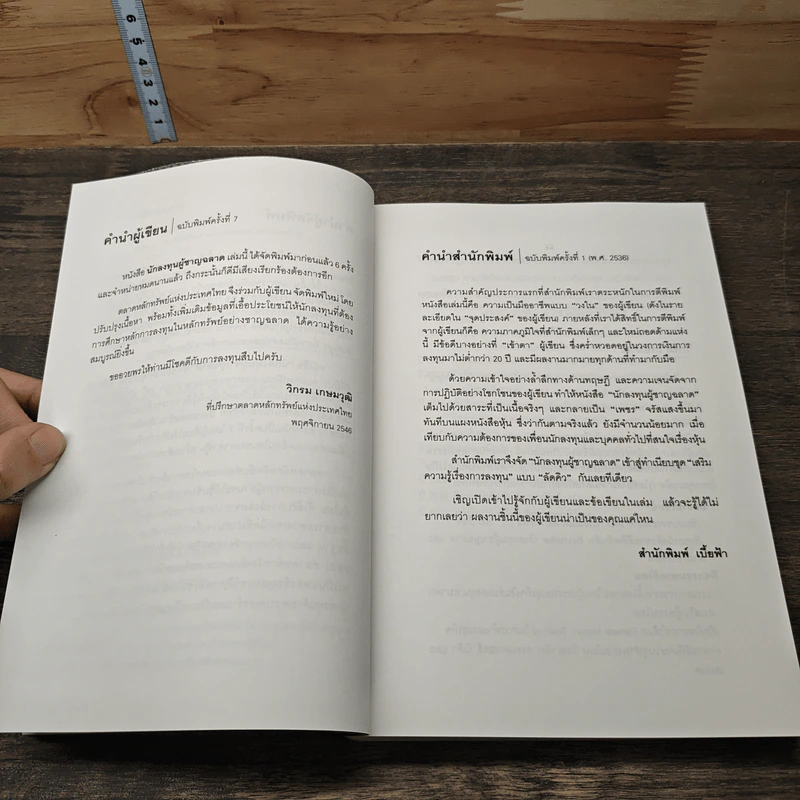 6 5 4 3 2 1
คำนำผู้เขียน | ฉบับพิมพ์ครั้งที่ 7
หนังสือ นักลงทุนผู้ชาญฉลาด เล่มนี้ ได้จัดพิมพ์มาก่อนแล้ว 6 ครั้ง
และจำหน่ายหมดนานแล้ว ถึงกระนั้นก็ดีมีเสียงเรียกร้องต้องการอีก
ตลาดหลักทรัพย์แห่งประเทศไทย จึงร่วมกับผู้เขียน จัดพิมพ์ใหม่ โดย
ปรับปรุงเนื้อหา พร้อมทั้งเพิ่มเติมข้อมูลที่เอื้อประโยชน์ให้นักลงทุนที่ต้อง
การศึกษาหลักการลงทุนในหลักทรัพย์อย่างชาญฉลาด ได้ความรู้อย่าง
สมบูรณ์ยิ่งขึ้น
ขออวยพรให้ท่านมีโชคดีกับการลงทุนสืบไปครับ
วิกรม เกษมวุฒิ
ที่ปรึกษาตลาดหลักทรัพย์แห่งประเทศไทย
พฤศจิกายน 2546
คำนำสำนักพิมพ์ | ฉบับพิมพ์ครั้งที่ 1 (พ.ศ. 2536)
ความสำคัญประการแรกที่สำนักพิมพ์เราตระหนักในการตีพิมพ์
หนังสือเล่มนี้คือ ความเป็นมืออาชีพแบบ "วงใน" ของผู้เขียน (ดังในราย
ละเอียดใน "จุดประสงค์" ของผู้เขียน) ภายหลังที่เราได้สิทธิ์ในการตีพิมพ์
จากผู้เขียนก็คือ ความภาคภูมิใจที่สำนักพิมพ์เล็กๆ และใหม่ถอดด้ามแห่ง
นี้ มีข้อดีบางอย่างที่ "เข้าตา" ผู้เขียน ซึ่งคร่ำหวอดอยู่ในวงการเงินการ
ลงทุนมาไม่ต่ำกว่า 20 ปี และมีผลงานมากมายทุกด้านที่ทำมากับมือ
ด้วยความเข้าใจอย่างล้ำลึกทางด้านทฤษฎี และความเจนจัดจาก
การปฏิบัติอย่างโชกโชนของผู้เขียน ทำให้หนังสือ "นักลงทุนผู้ชาญฉลาด"
เต็มไปด้วยสาระที่เป็นเนื้อจริงๆ และกลายเป็น "เพชร" จรัสแสงขึ้นมา
ทันทีบนแผงหนังสือหุ้น ซึ่งว่ากันตามจริงแล้ว ยังมีจำนวนน้อยมาก เมื่อ
เทียบกับความต้องการของเพื่อนนักลงทุนและบุคคลทั่วไปที่สนใจเรื่องหุ้น
สำนักพิมพ์เราจึงจัด "นักลงทุนผู้ชาญฉลาด" เข้าสู่ทำเนียบชุด "เสริม
ความรู้เรื่องการลงทุน" แบบ "ลัดคิว" กันเลยทีเดียว
เชิญเปิดเข้าไปรู้จักกับผู้เขียนและข้อเขียนในเล่ม แล้วจะรู้ได้ไม่
ยากเลยว่า ผลงานชิ้นนี้ของผู้เขียนน่าเป็นของคุณแค่ไหน
สำนักพิมพ์ เบี้ยฟ้า